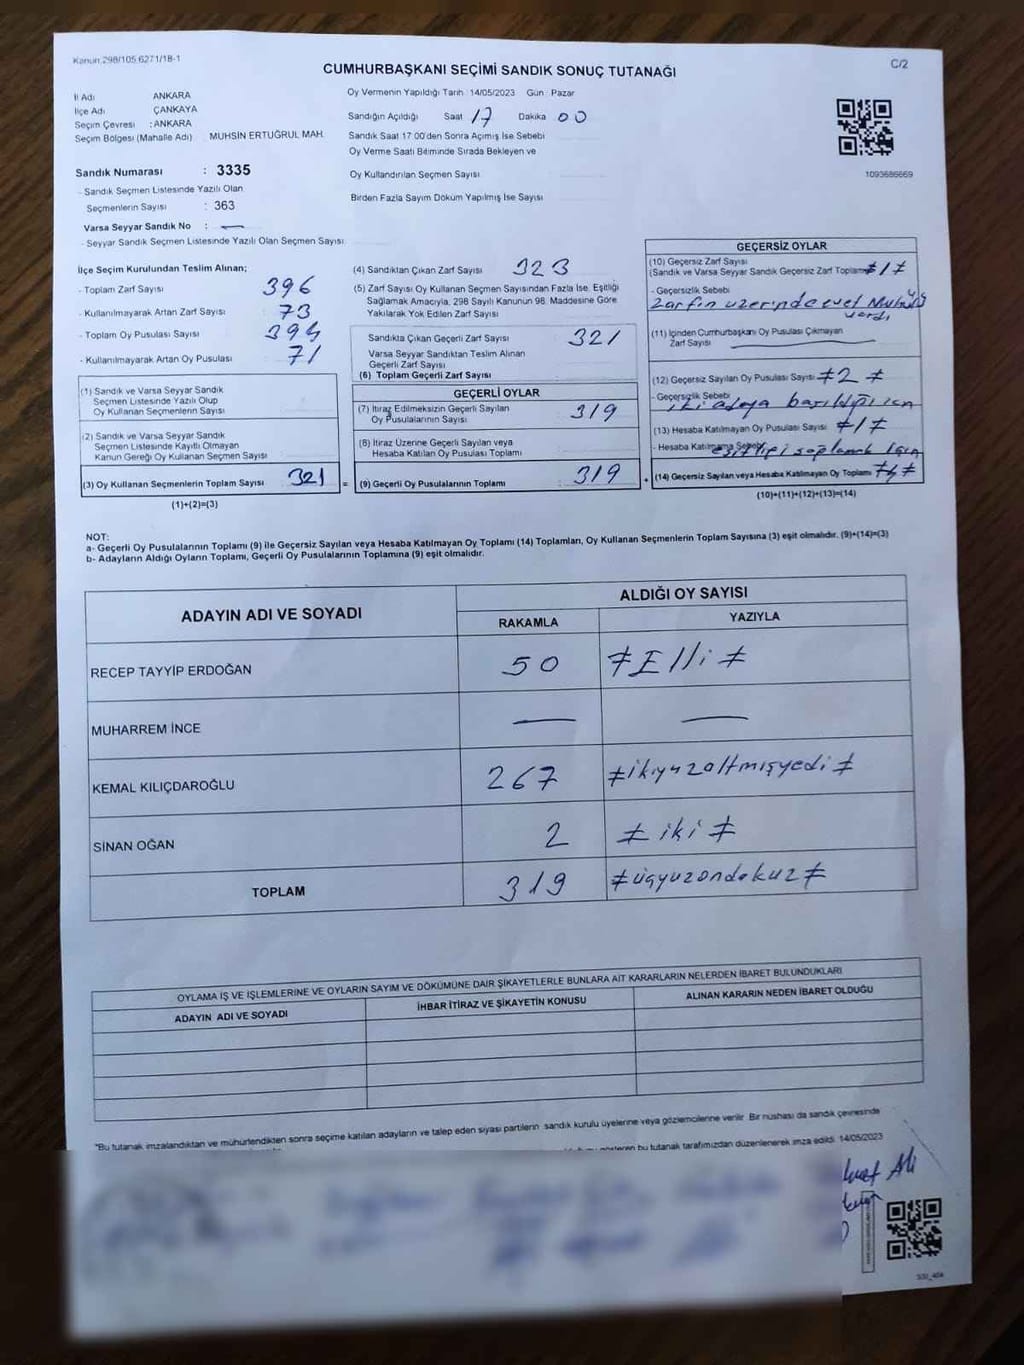 Kanun 298/105 6271/18-1
C/2
CUMHURBAŞKANI SEÇİMİ SANDIK SONUÇ TUTANAĞI
İl Adı ANKARA
İlçe Adı ÇANKAYA
Seçim Çevresi : ANKARA
Seçim Bölgesi (Mahalle Adı) MUHSİN ERTUĞRUL MAH.
Sandık Numarası : 3335
- Sandık Seçmen Listesinde Yazılı Olan
Seçmenlerin Sayısı : 363
Varsa Seyyar Sandık No : —
- Seyyar Sandık Seçmen Listesinde Yazılı Olan Seçmen Sayısı
Oy Vermenin Yapıldığı Tarih 14/05/2023 Gün : Pazar
Sandığın Açıldığı Saat 17 Dakika 00
Sandık Saat 17:00'den Sonra Açılmış İse Sebebi
Oy Verme Saati Bitiminde Sırada Bekleyen ve
Oy Kullandırılan Seçmen Sayısı
Birden Fazla Sayım Döküm Yapılmış İse Sayısı
1093686669
İlçe Seçim Kurulundan Teslim Alınan;
- Toplam Zarf Sayısı 396
- Kullanılmayarak Artan Zarf Sayısı 73
- Toplam Oy Pusulası Sayısı 394
- Kullanılmayarak Artan Oy Pusulası 71
(1) Sandık ve Varsa Seyyar Sandık
Seçmen Listesinde Yazılı Olup
Oy Kullanan Seçmenlerin Sayısı
(2) Sandık ve Varsa Seyyar Sandık
Seçmen Listesinde Kayıtlı Olmayan
Kanun Gereği Oy Kullanan Seçmen Sayısı
(3) Oy Kullanan Seçmenlerin Toplam Sayısı 321 =
(1)+(2)=(3)
(4) Sandıktan Çıkan Zarf Sayısı 323
(5) Zarf Sayısı Oy Kullanan Seçmen Sayısından Fazla İse, Eşitliği
Sağlamak Amacıyla, 298 Sayılı Kanunun 98. Maddesine Göre
Yakılarak Yok Edilen Zarf Sayısı
Sandıkta Çıkan Geçerli Zarf Sayısı 321
Varsa Seyyar Sandıktan Teslim Alınan
Geçerli Zarf Sayısı
(6) Toplam Geçerli Zarf Sayısı
GEÇERLİ OYLAR
(7) İtiraz Edilmeksizin Geçerli Sayılan
Oy Pusulalarının Sayısı 319
(8) İtiraz Üzerine Geçerli Sayılan veya
Hesaba Katılan Oy Pusulası Toplamı
(9) Geçerli Oy Pusulalarının Toplamı 319 +
GEÇERSİZ OYLAR
(10) Geçersiz Zarf Sayısı
(Sandık ve Varsa Seyyar Sandık Geçersiz Zarf Toplamı) ≠1≠
- Geçersizlik Sebebi
Zarfın üzerinde evet Mührü
vardı
(11) İçinden Cumhurbaşkanı Oy Pusulası Çıkmayan
Zarf Sayısı —
(12) Geçersiz Sayılan Oy Pusulası Sayısı ≠2≠
- Geçersizlik Sebebi
iki adaya basıldığı için
(13) Hesaba Katılmayan Oy Pusulası Sayısı ≠1≠
- Hesaba Katılmama Sebebi
eşitliği sağlamak için
(14) Geçersiz Sayılan veya Hesaba Katılmayan Oy Toplamı ≠4≠
(10)+(11)+(12)+(13)=(14)
NOT:
a- Geçerli Oy Pusulalarının Toplamı (9) ile Geçersiz Sayılan veya Hesaba Katılmayan Oy Toplamı (14) Toplamları, Oy Kullanan Seçmenlerin Toplam Sayısına (3) eşit olmalıdır. (9)+(14)=(3)
b- Adayların Aldığı Oyların Toplamı, Geçerli Oy Pusulalarının Toplamına (9) eşit olmalıdır.
ADAYIN ADI VE SOYADI ALDIĞI OY SAYISI
RAKAMLA YAZIYLA
RECEP TAYYİP ERDOĞAN 50 ≠Elli≠
MUHARREM İNCE — —
KEMAL KILIÇDAROĞLU 267 ≠ikiyüzaltmışyedi≠
SİNAN OĞAN 2 ≠iki≠
TOPLAM 319 ≠üçyüzondokuz≠
OYLAMA İŞ VE İŞLEMLERİNE VE OYLARIN SAYIM VE DÖKÜMÜNE DAİR ŞİKAYETLERLE BUNLARA AİT KARARLARIN NELERDEN İBARET BULUNDUKLARI
ADAYIN ADI VE SOYADI İHBAR İTİRAZ VE ŞİKAYETİN KONUSU ALINAN KARARIN NEDEN İBARET OLDUĞU
"Bu tutanak imzalandıktan ve mühürlendikten sonra seçime katılan adayların ve talep eden siyasi partilerin sandık kurulu üyelerine veya gözlemcilerine verilir. Bir nüshası da sandık çevresinde
gösteren bu tutanak tarafımızdan düzenlenerek imza edildi. 14/05/2023
Ali